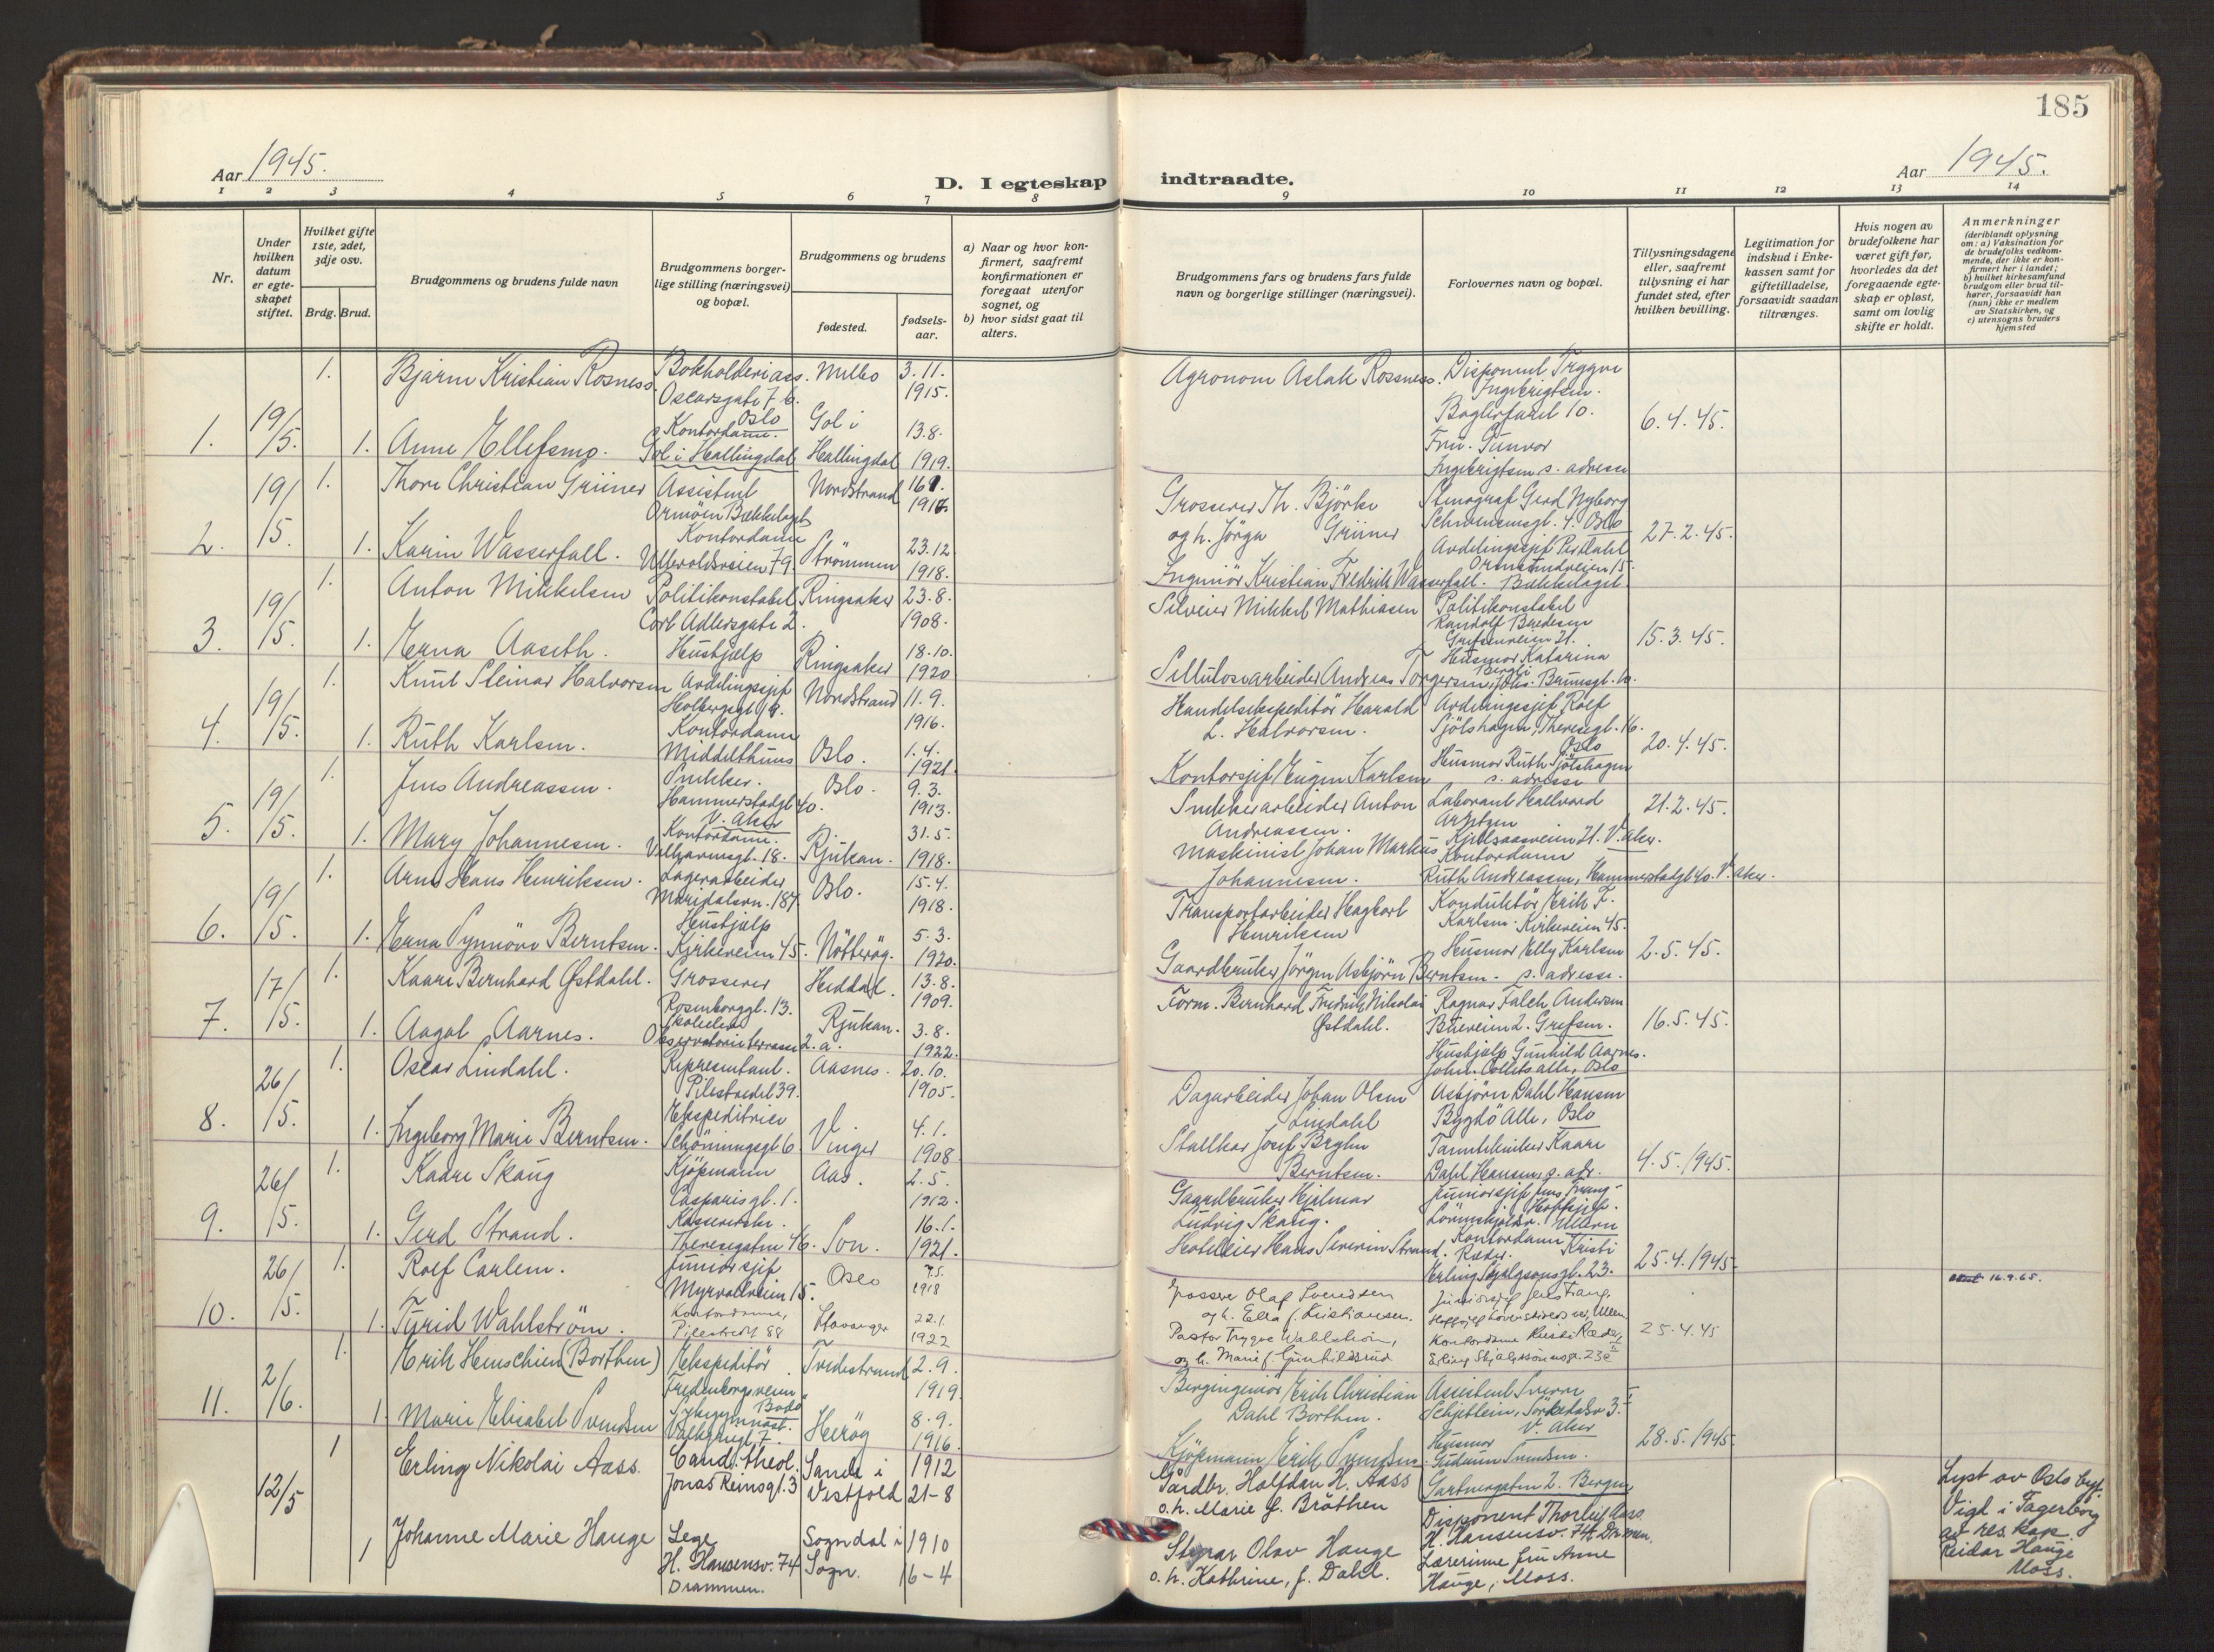 185
Aar 1945.
D. I egteskap indtraadte.
Aar 1945.
1 2 3 4 5 6 7 8 9 10 11 12 13 14
Nr.
Under hvilken datum er egteskapet stiftet.
Hvilket gifte 1ste, 2det, 3dje osv.
Brdg. Brud.
Brudgommens og brudens fulde navn
Brudgommens borgerlige stilling (næringsvei) og bopæl.
Brudgommens og brudens
fødested.
fødselsaar.
a) Naar og hvor konfirmert, saafremt konfirmationen er foregaat utenfor sognet, og
b) hvor sidst gaat til alters.
Brudgommens fars og brudens fars fulde navn og borgerlige stillinger (næringsvei).
Forlovernes navn og bopæl.
Tillysningsdagene eller, saafremt tillysning ei har fundet sted, efter hvilken bevilling.
Legitimation for indskud i Enkekassen samt for giftetilladelse, forsaavidt saadan tiltrænges.
Hvis nogen av brudefolkene har været gift før, hvorledes da det foregaaende egteskap er opløst, samt om lovlig skifte er holdt.
Anmerkninger
(deriblandt oplysning om: a) Vaksination for de brudefolks vedkommende, der ikke er konfirmert her i landet; b) hvilket kirkesamfund brudgom eller brud tilhører, forsaavidt han (hun) ikke er medlem av Statskirken, og c) utensogns bruders hjemsted
1. 19/5. 1. Bjarne Kristian Rosness. Bokholderiass. Oscarsgate 76. Oslo Melbo 3.11. 1915. Agronom Aslak Rossness. Disponent Trygve Ingebrigtsen. Baglerfaret 10. 6.4.45.
1. Anne Ellefsmo. Kontordame. Gol i Hallingdal Gol i Hallingdal 13.8. 1919. Fru. Gunvor Ingebrigtsen s. adresse
2. 19/5. 1. Thore Christian Grüner Assistent Ormöen Bækkelaget Nordstrand Grosserer Th. Björke Grüner og h. Jörga Stenograf Gerd Nyborg Oslo 27.2.45.
1. Karin Wasserfall. Kontordame Ullevoldsveien 79. Strömmen 23.12 1918. Ingeniör Kristian Fredrik Wasserfall. Avdelingssjef Per Dahl Ormsundveien 15. Bækkelaget.
3. 19/5. 1. Anton Mikkelsen Politikonstabel Cort Adlersgate 2. Ringsaker 23.8. 1908. Mikkel Mathiasen Politikonstabel Randolf Bredesen 15.3.45.
1. Erna Aaseth. Hushjælp Ringsaker 18.10. 1920 Sellulosearbeider Andreas Torgersen Husmor Katarina
4. 19/5. 1. Knut Steinar Halvorsen Avdelingssjef Holbergsgt. 19. Nordstrand 11.9. 1916. Handelsekspeditör Harald L. Halvorsen. Avdelingssjef Rolf Sjölshagen, Theresegt. 16. Oslo 20.4.45.
1. Ruth Karlsen. Kontordame Middelthuns Oslo. 1.4. 1921. Kontorsjef Eugen Karlsen Husmor Ruth Sjölshagen s. adresse
5. 19/5. 1. Jens Andreassen. Snekker. Hammerstadgt. 40. V. Aker Oslo. 9.3. 1913. Snekkerarbeider Anton Andreassen. Laborant Hallvard Arntzen Kjelsaasveien 71. V. Aker. 21.2.45.
1. Mary Johannesen. Kontordame. Vilhelmsgt. 18. Rjukan. 31.5. 1918. Maskinist Johan Markus Johannesen. Kontordame Ruth Andreassen, Hammerstadgt. 40. V. Aker.
6. 19/5. 1. Arne Hans Henriksen. Lagerarbeider Maridalsvn. 187 Oslo. 15.4. 1918. Transportarbeider Hagbart Henriksen Konduktör Erik F. Karlsen. Kirkeveien 45. 2.5.45.
1. Erna Synnöve Berntsen. Hushjælp Kirkeveien 45. Nötteröy. 5.3. 1920. Gaardbruker Jörgen Asbjörn Berntsen. Husmor Elly Karlsen s. adresse.
7. 17/5. 1. Kaare Bernhard Østdahl. Grosserer Rosenborggt. 13. Heddal. 13.8. 1909. Form. Bernhard Fredrik Nikolai Østdahl. Ragnar Falch Andersen Grefsen. 16.5.45.
1. Aagot Aarnes. Observatorieterrasse 2. a. Rjukan. 3.8. 1922. Hushjælp Gunhild Aarnes. John Colletts alle, Oslo
8. 26/5. 1. Oscar Lindahl. Representant. Pilestredet 39. Aasnes. 20.10. 1905. Dagarbeider Johan Olsen Lindahl Asbjörn Dahl Hansen Bygdö Alle, Oslo
1. Ingeborg Marie Berntsen. Ekspeditrice Schöningsgt 6. Vinger 4.1. 1908. Stallkar Josef Berntsen. Tanntekniker Kaare Dahl Hansen, s. adr. 4.5.1945.
9. 26/5. 1. Kaare Skaug Kjöpmann Casparisgt. 1. Aas. 2.5. 1912. Gaardbruker Hjalmar Ludvig Skaug. Juniorsjef Jens Trang
1. Gerd Strand. Kassererske. Theresegaten 46. Son. 16.1. 1921. Hoteleier Hans Severin Strand. Kontordame Kristi Ræder. Erling Skjalgsonsgt. 23. 25.4.1945.
10. 26/5. 1. Rolf Carlem. Juniorsjef Myrvollveien 15. Oslo 7.5. 1918 Grosserer Olaf Svendsen og h. Ella f. Kristiansen. Juniorsjef Jens Trang. 16.9.65.
1. Turid Wahlström. Kontordame, Pilestredet 88 Stavanger 22.1. 1922 Pastor Trygve Wahlström, og h. Marie f. Gunhildsrud Kontordame Kristi Ræder, Erling Skjalgssönnsgt. 23 25.4.45
11. 2/6. 1. Erik Henschien (Borthen) Ekspeditör Fredensborgveien Bodö Tvedestrand 2.9. 1919. Bergingeniör Erik Christian Dahl Borthen. Assistent Sverre Schjetlein, Sörkedalsv 3. V. Aker
1 Marie Elisabet Svendsen Sykegymnast. Heröy 8.9. 1916. Kjöpmann Erik Svendsen. Husmor Gudrun Svendsen. Gartnergaten 2. Bergen 28.5.1945.
12/5 1 Erling Nikolai Aass. Cand. theol. Jonas Reinsgt. 3 Sande i Vestfold 1912 21-8 Gårdbr. Halfdan H. Aass o. h. Marie f. Bråthen Disponent Thorleif Aass. H. Hansensv. 74 Drammen. Lyst av Oslo byf. Vigl i Fagerborg av res. kap. Reidar Hauge Moss.
1 Johanne Marie Hauge Lege H. Hansensv. 74 Drammen. Sogndal i Sogn. 1910 16-4 Olav Hauge o. h. Kathrine, f. Dahl. Lærerinne fru Anne Hauge, Moss.